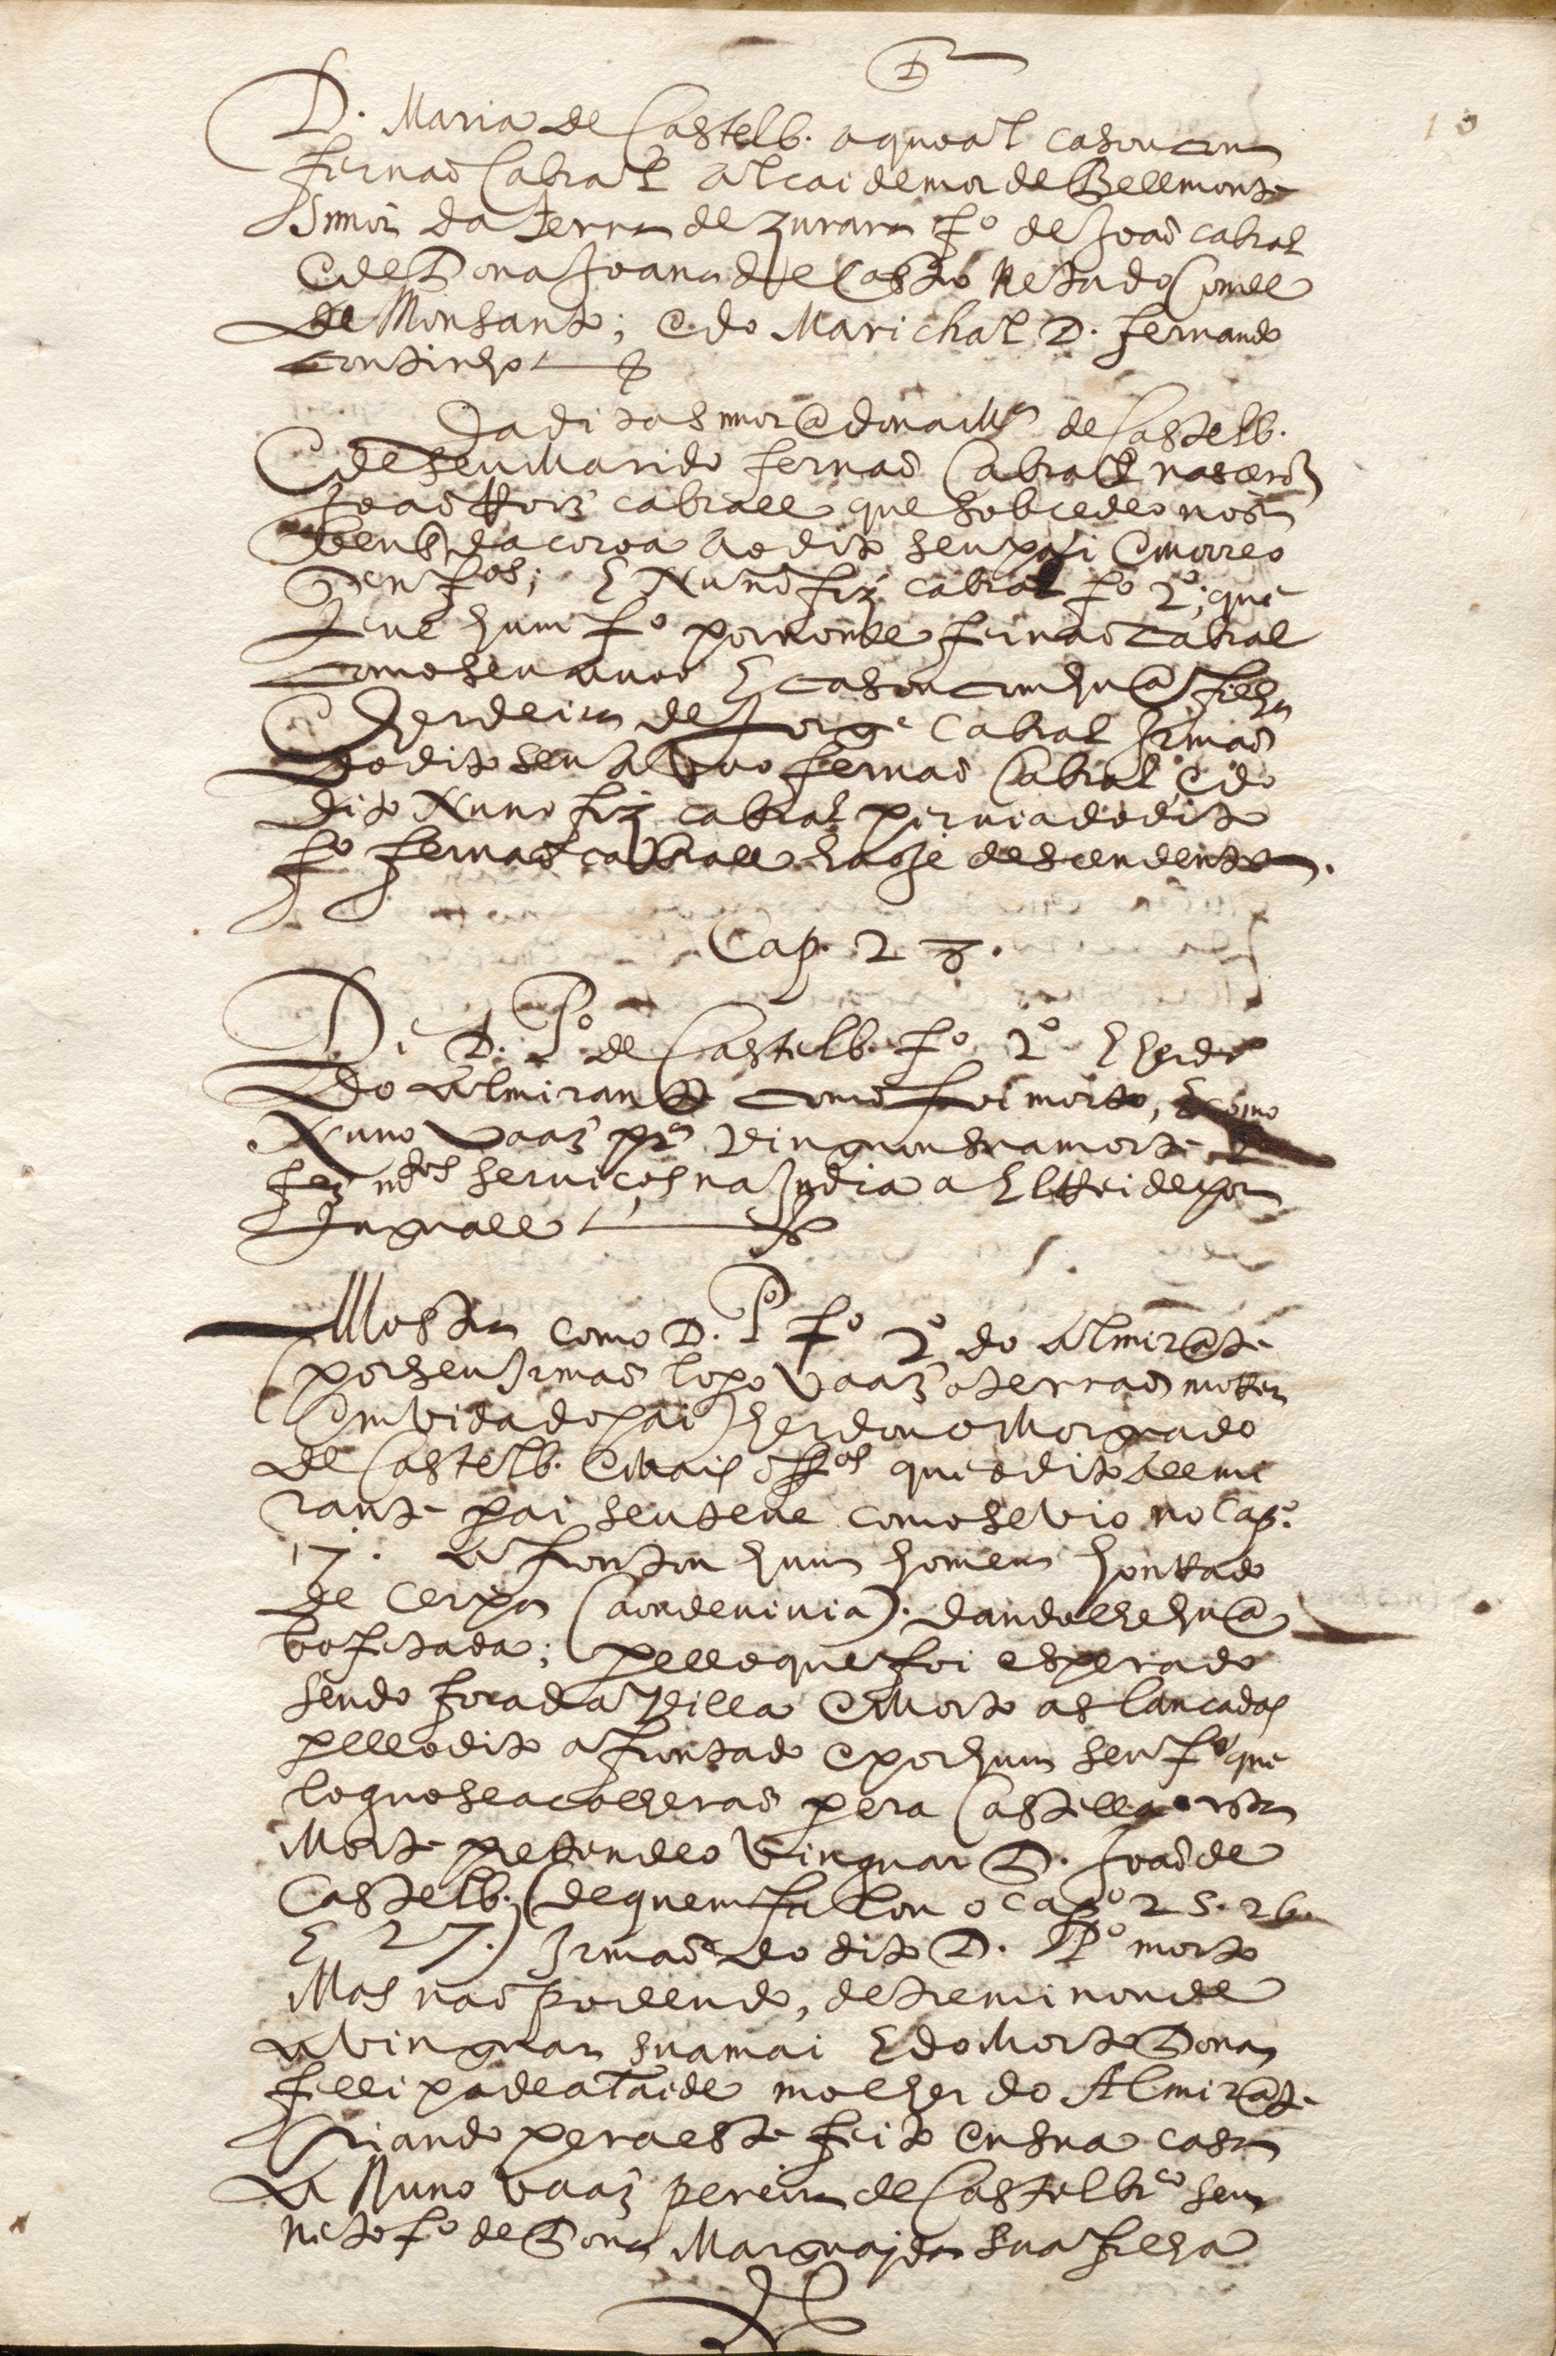 D. Maria de Castelb. aqual casou com
fernaõ Cabral Alcaidemor de Bellmonte
Snnor da terra de Zurara fº de Joaõ cabral
E de Dona Joana de Castro Neta do Comde
de Monsanto; e do Marichal D. fernando
coutinho
Da dita snnora dona Mª de Castelb.
E de seu Marido fernaõ Cabral nasceraõ
Joaõ Roiz cabrall que sobcedeo nos
bens da coroa ao dito seu pai e morreo
sen fos; E Nuno friz cabral fº 2º; que
teve hum fº por nome fernaõ Cabral
como seu avoo E casou com hua filha
Herdeira de Jorge Cabral Jrmaõ
do dito seu Avoo fernaõ Cabral E do
dito Nuno friz cabral per via do dito
fº fernaõ cabrall ha oje descendentes.
Cap. 28.
De D. Pº de Castelb. fº 2º E herdrº
do Almirante como foi morto, E como
Nuno Vaaz prª vingou sua morte E
fez mtos serviços na India a El Rei de por
tugall
Mostra como D. Pº fº 2º do Almirãte
(por seu Jrmaõ lopo Vaaz o terraõ morrer
em vida do pai) herdou o Morguado
de Castelb. e mais que o dito Allmi
rante pai seu teve como se vio no Cap.º
17. Afrontou hum homem honrrado
de Cerpa (aonde vivia). dandolhe hua
bofetada; pello que foi esperado
sendo fora da Villa e Morto as lancadas
pello dito afrontado e por hum seu fº que
loguo se acolheraõ pera Castella esta
Morte pretendeo vinguar D. Joaõ de
Castelb. (de quem fallou o capº 25. 26.
E 27.) Jrmaõ do dito D. Pº morto
Mas naõ podendo, detreminou de
a vinguar sua mai E do Morto Dona
fellipa de ataide molher do Almirãte
Criando pera este feito en sua casa
A Nuno Vaaz pereira de Castelbrº seu
neto fº de Dona Marguajda sua filha